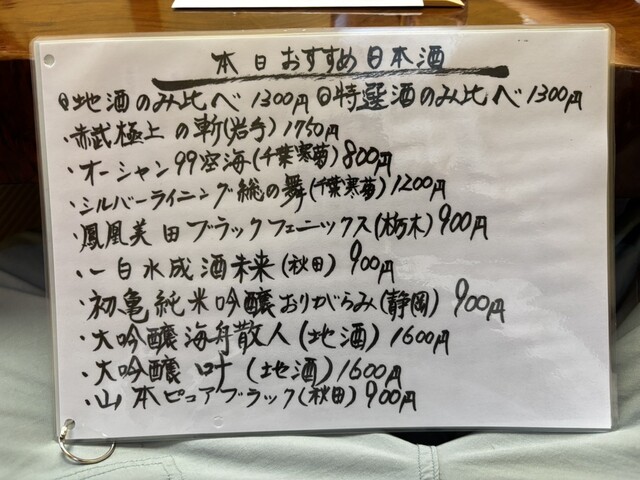 本日おすすめ日本酒
地酒のみ比べ 1300円 特選酒のみ比べ 1300円
・赤武極上の斬(岩手) 1750円
・オーシャン99空海(千葉寒菊) 800円
・シルバーライニング総の舞(千葉寒菊) 1200円
・鳳凰美田ブラックフェニックス(栃木) 900円
・一白水成酒未来(秋田) 900円
・初亀純米吟醸おりがらみ(静岡) 900円
・大吟醸海舟散人(地酒) 1600円
・大吟醸 叶(地酒) 1600円
・山本ピュアブラック(秋田) 900円